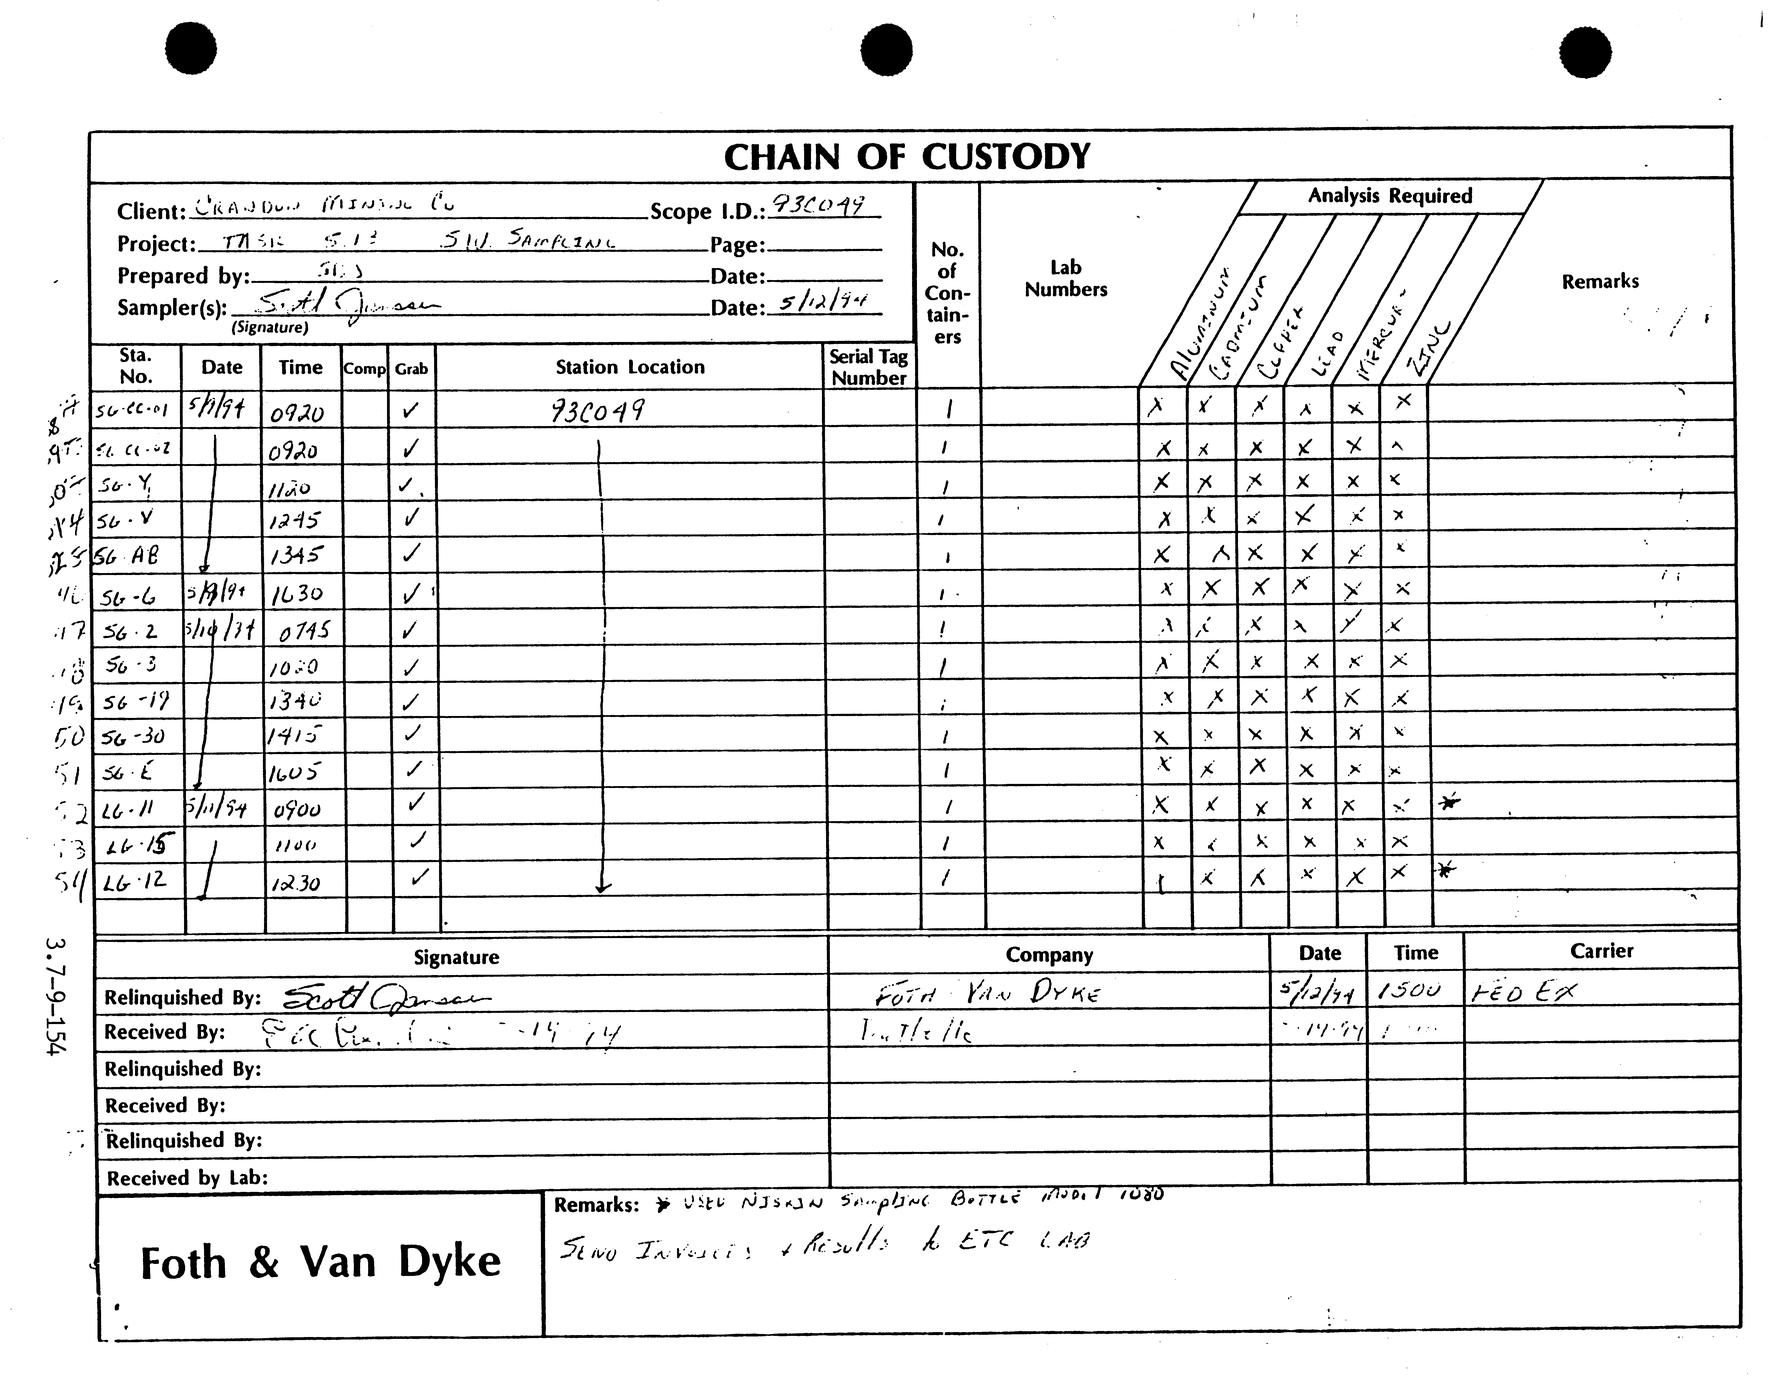 CHAIN OF CUSTODY
Client: CRANDON MINING CO Scope I.D.: 93C049
Project: TASK 5.13 S.W. SAMPLING Page:
Prepared by: SDJ Date:
Sampler(s): Scott Janssen Date: 5/12/94
(Signature)
No. of Con-tain-ers
Lab Numbers
Analysis Required
ALUMINUM CADMIUM COPPER LEAD ZINC
Remarks
Sta. No. Date Time Comp Grab Station Location Serial Tag Number
SG-CC-01 5/9/94 0920 ✓ 93C049 1 X X X X X X
SG CC-02 0920 ✓ 1 X X X X X X
SG-Y 1120 ✓ 1 X X X X X X
SG-V 1245 ✓ 1 X X X X X X
SG-AB 1345 ✓ 1 X X X X X X
SG-6 5/9/94 1630 ✓ 1 X X X X X X
17 SG-2 5/10/94 0745 ✓ 1 X X X X X X
18 SG-3 ✓ 1 X X X X X X
19 SG-19 1340 ✓ 1 X X X X X X
50 SG-30 1415 ✓ 1 X X X X X X
51 SG-E 1605 ✓ 1 X X X X X X
52 LG-11 5/11/94 0900 ✓ 1 X X X X X X *
53 LG-15 1100 ✓ 1 X X X X X X
54 LG-12 1230 ✓ 1 X X X X X X *
Signature Company Date Time Carrier
Relinquished By: Scott Janssen FOTH VAN DYKE 5/12/94 1500 FED EX
Received By: Battelle
Relinquished By:
Received By:
Relinquished By:
Received by Lab:
Foth & Van Dyke
Remarks: * USED NISKIN SAMPLING BOTTLE MODEL 1080
SEND INVOICES + RESULTS to ETC LAB
3.7-9-154